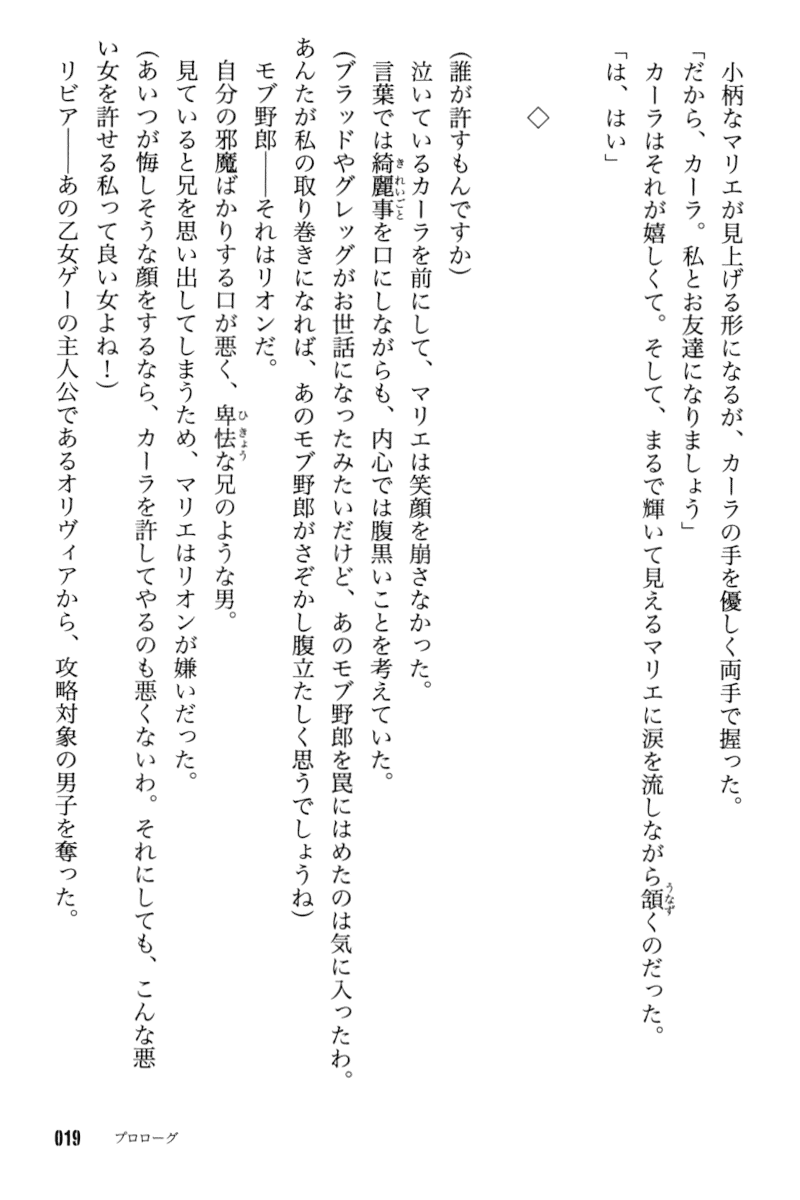 小柄なマリエが見上げる形になるが、カーラの手を優しく両手で握った。
「だから、カーラ。私とお友達になりましょう」
カーラはそれが嬉しくて。そして、まるで輝いて見えるマリエに涙を流しながら頷くのだった。
「は、はい」
◇
(誰が許すもんですか)
泣いているカーラを前にして、マリエは笑顔を崩さなかった。
言葉では綺麗事を口にしながらも、内心では腹黒いことを考えていた。
(ブラッドやグレッグがお世話になったみたいだけど、あのモブ野郎を罠にはめたのは気に入ったわ。
あんたが私の取り巻きになれば、あのモブ野郎がさぞかし腹立たしく思うでしょうね)
モブ野郎――それはリオンだ。
自分の邪魔ばかりする口が悪く、卑怯な兄のような男。
見ていると兄を思い出してしまうため、マリエはリオンが嫌いだった。
(あいつが悔しそうな顔をするなら、カーラを許してやるのも悪くないわ。それにしても、こんな悪
い女を許せる私って良い女よね！)
リビア――あの乙女ゲーの主人公であるオリヴィアから、攻略対象の男子を奪った。
019 プロローグ